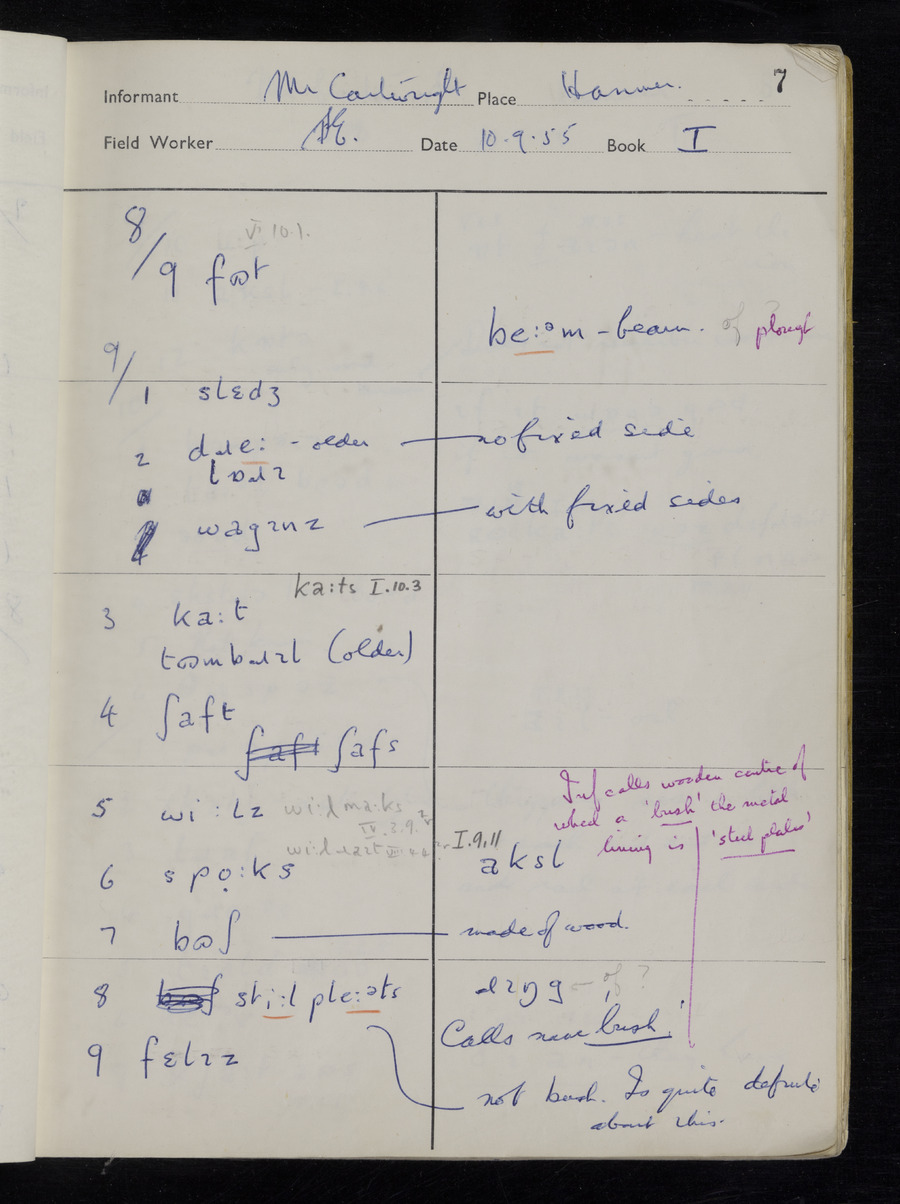 Informant Mr Cartwright Place Hanmer. 7
Field Worker Date 10.9.55 Book I
8/ VI 10.1.
9 fɷt
be:ᵊm – beam. of plough
9/
1 slɛdʒ
2 dɹe: – older no fixed side
wagɹnz with fixed sides
ka:ts I.10.3
3 ka:t
(older)
4 ʃaft
ʃaft ʃafs
Inf calls wooden centre of
wheel a 'bush' the metal
lining is 'steel plates'
5 wi:lz wi:lma:ks
IV.3.9.
I.9.11
aksl
6 spo̤:ks
7 bɷʃ made of wood.
8 sti:l ple:ᵊts
– of ?
Calls nave bush.
9 fɛlɹz
not bush. Is quite definite
about this.